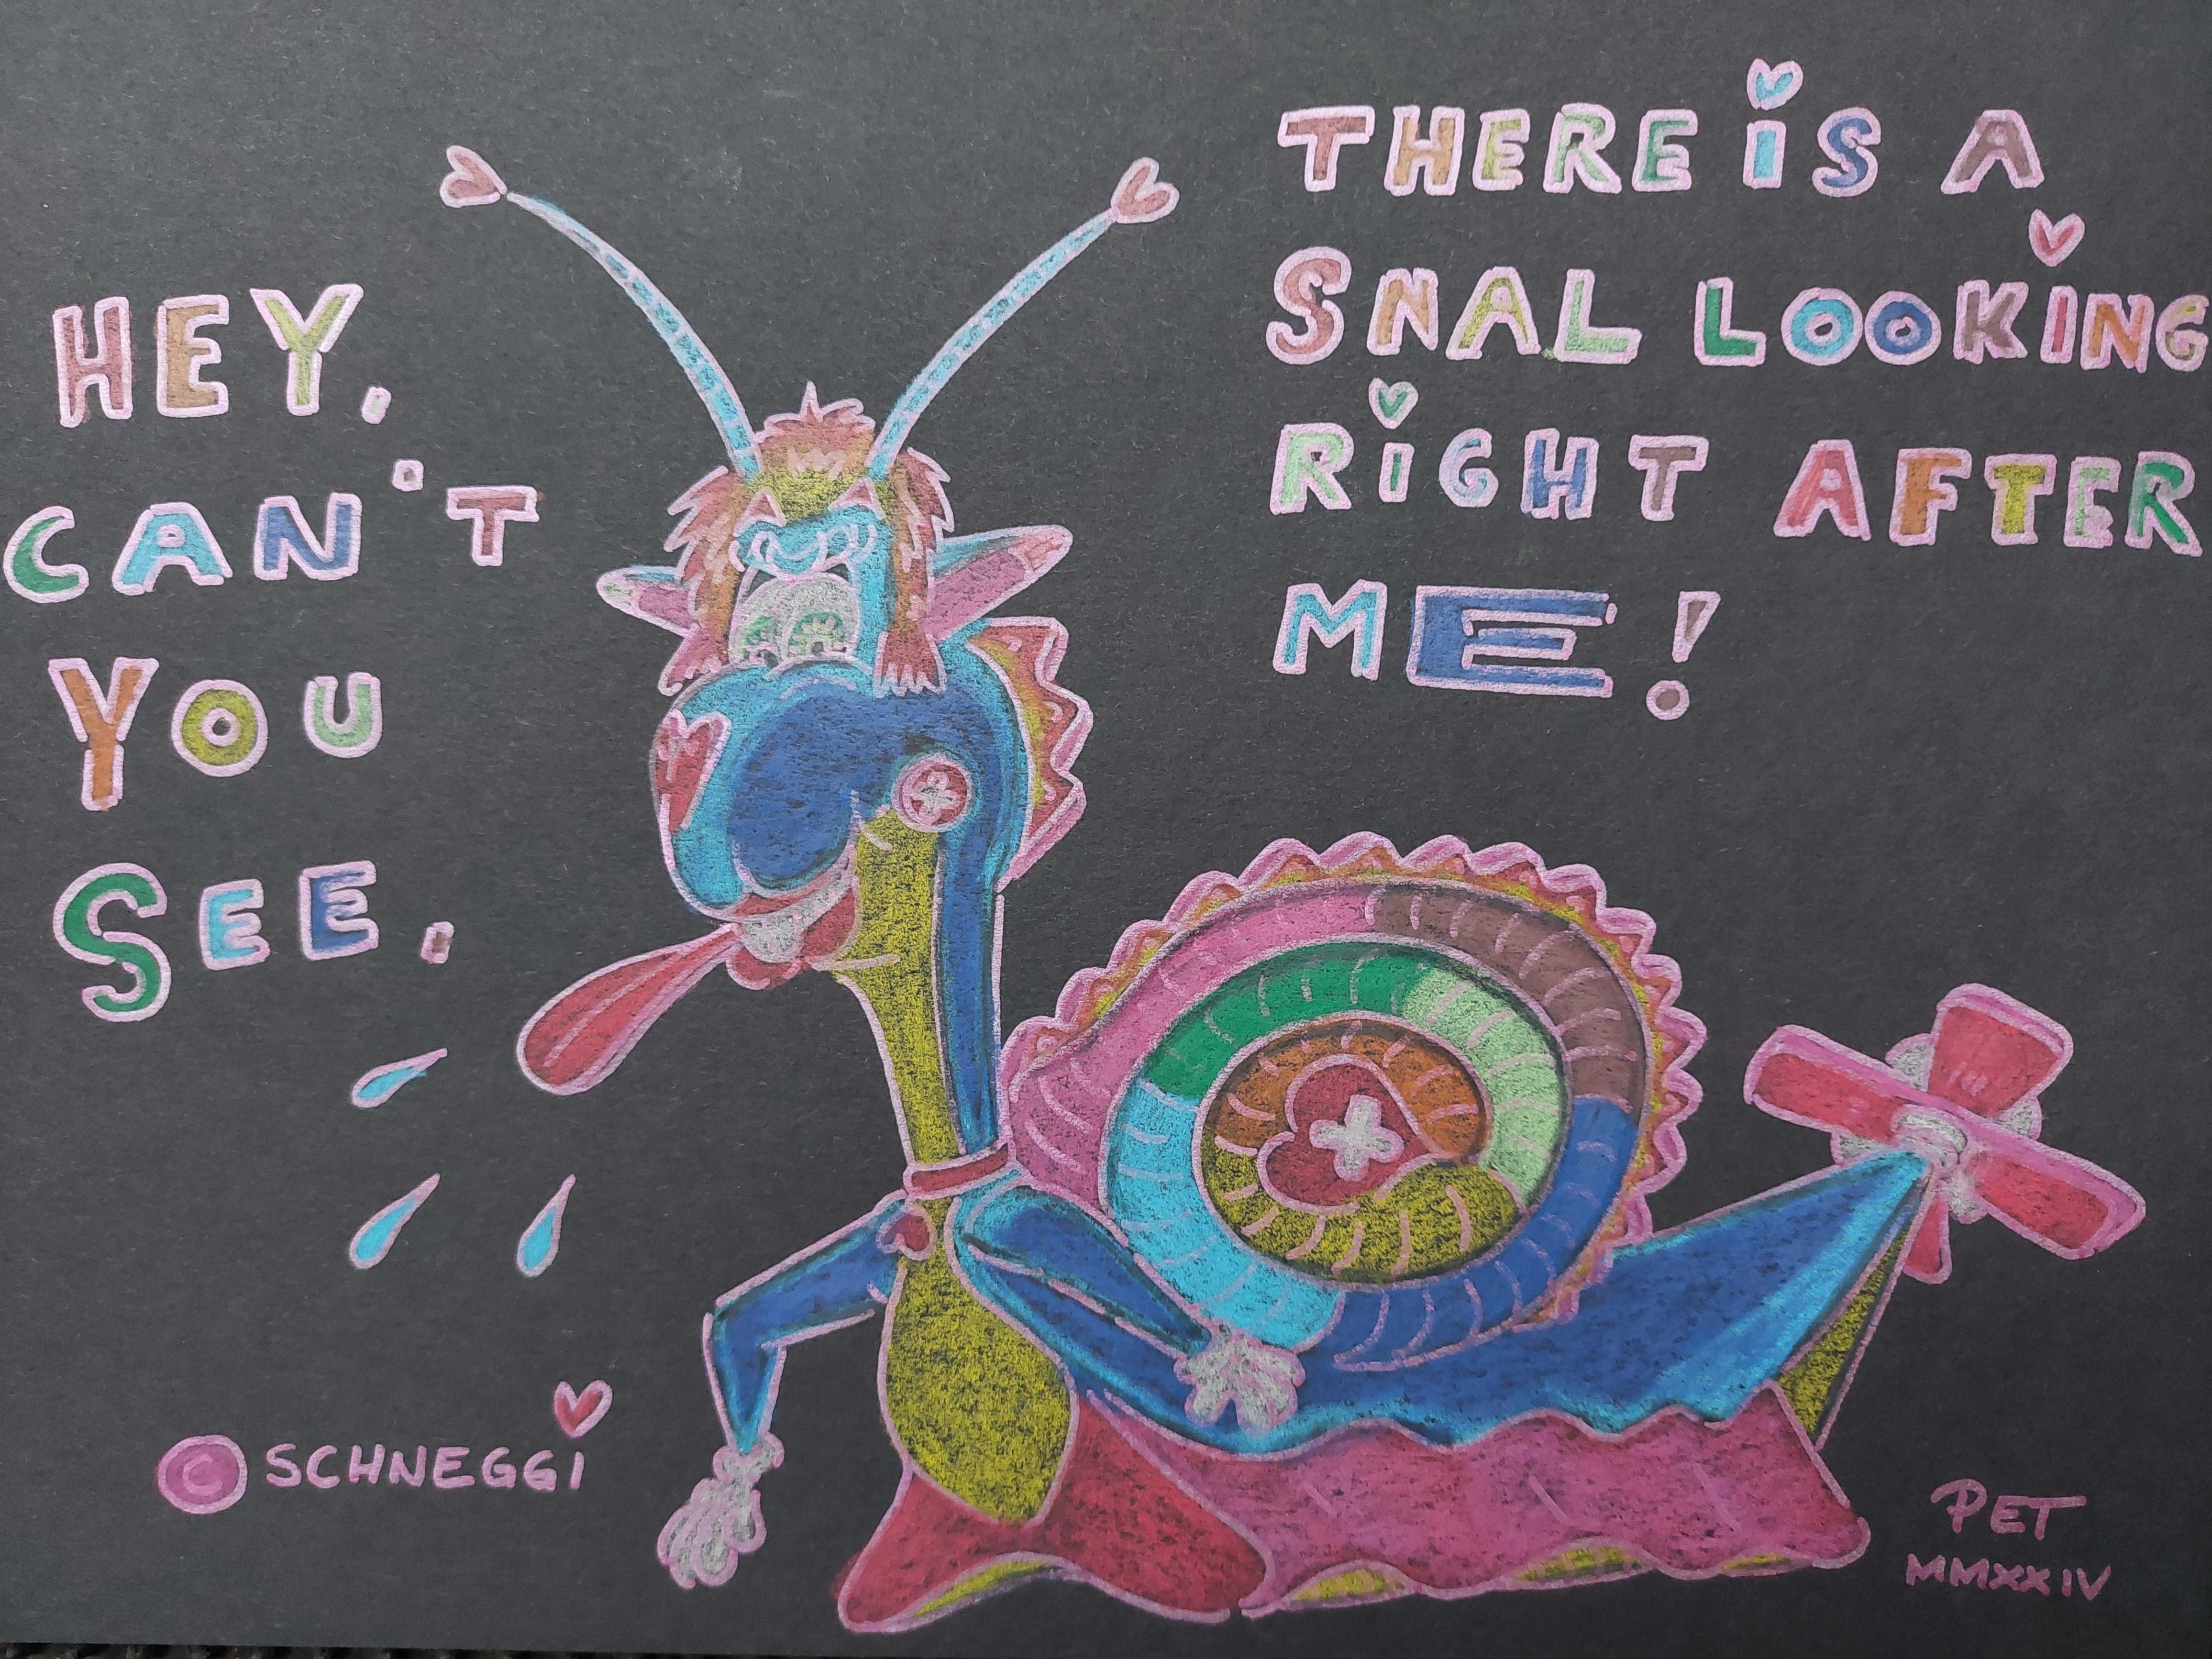 HEY,
CAN'T
YOU
SEE,
THERE iS A
SNAL LOOKING
RiGHT AFTER
ME!
© SCHNEGGi
PET
MMXXIV